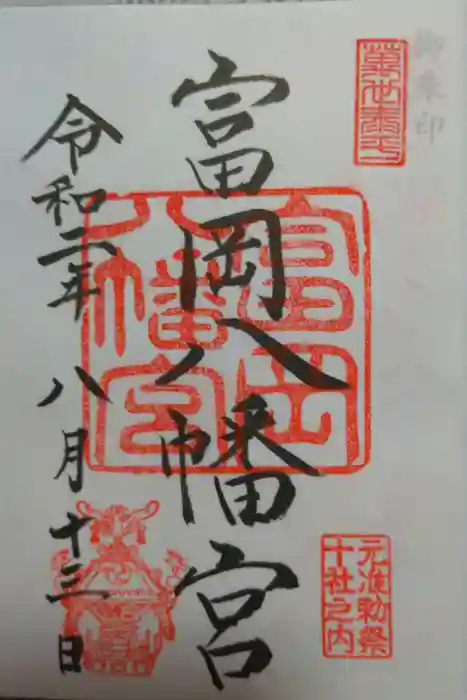 御朱印
萬世泰平
富岡八幡宮
富岡
八幡宮
元准勅祭
十社之内
令和二年八月十三日